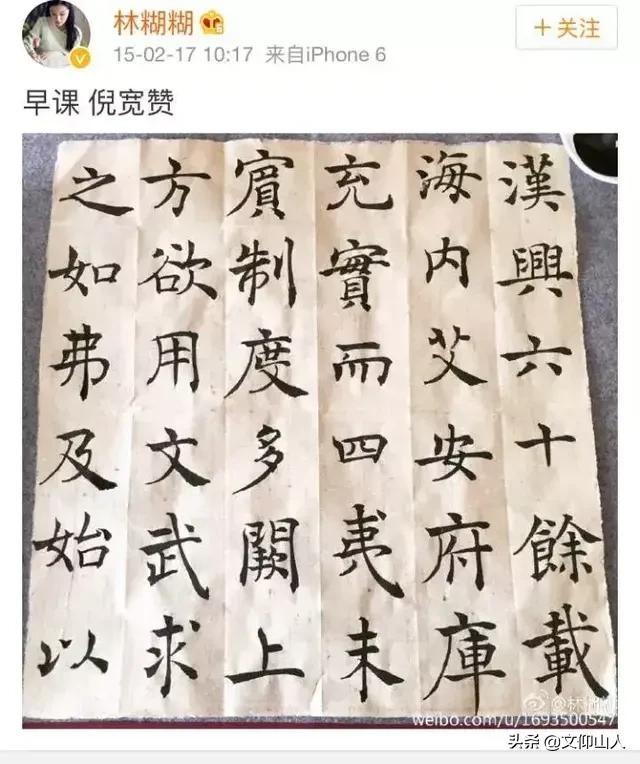 林糊糊
15-02-17 10:17 来自iPhone 6
+关注
早课 倪宽赞
漢興六十餘載
海内艾安府庫
充實而四夷未
賓制度多闕上
方欲用文武求
之如弗及始以
weibo.com/u/1693500547
头条@文仰山人